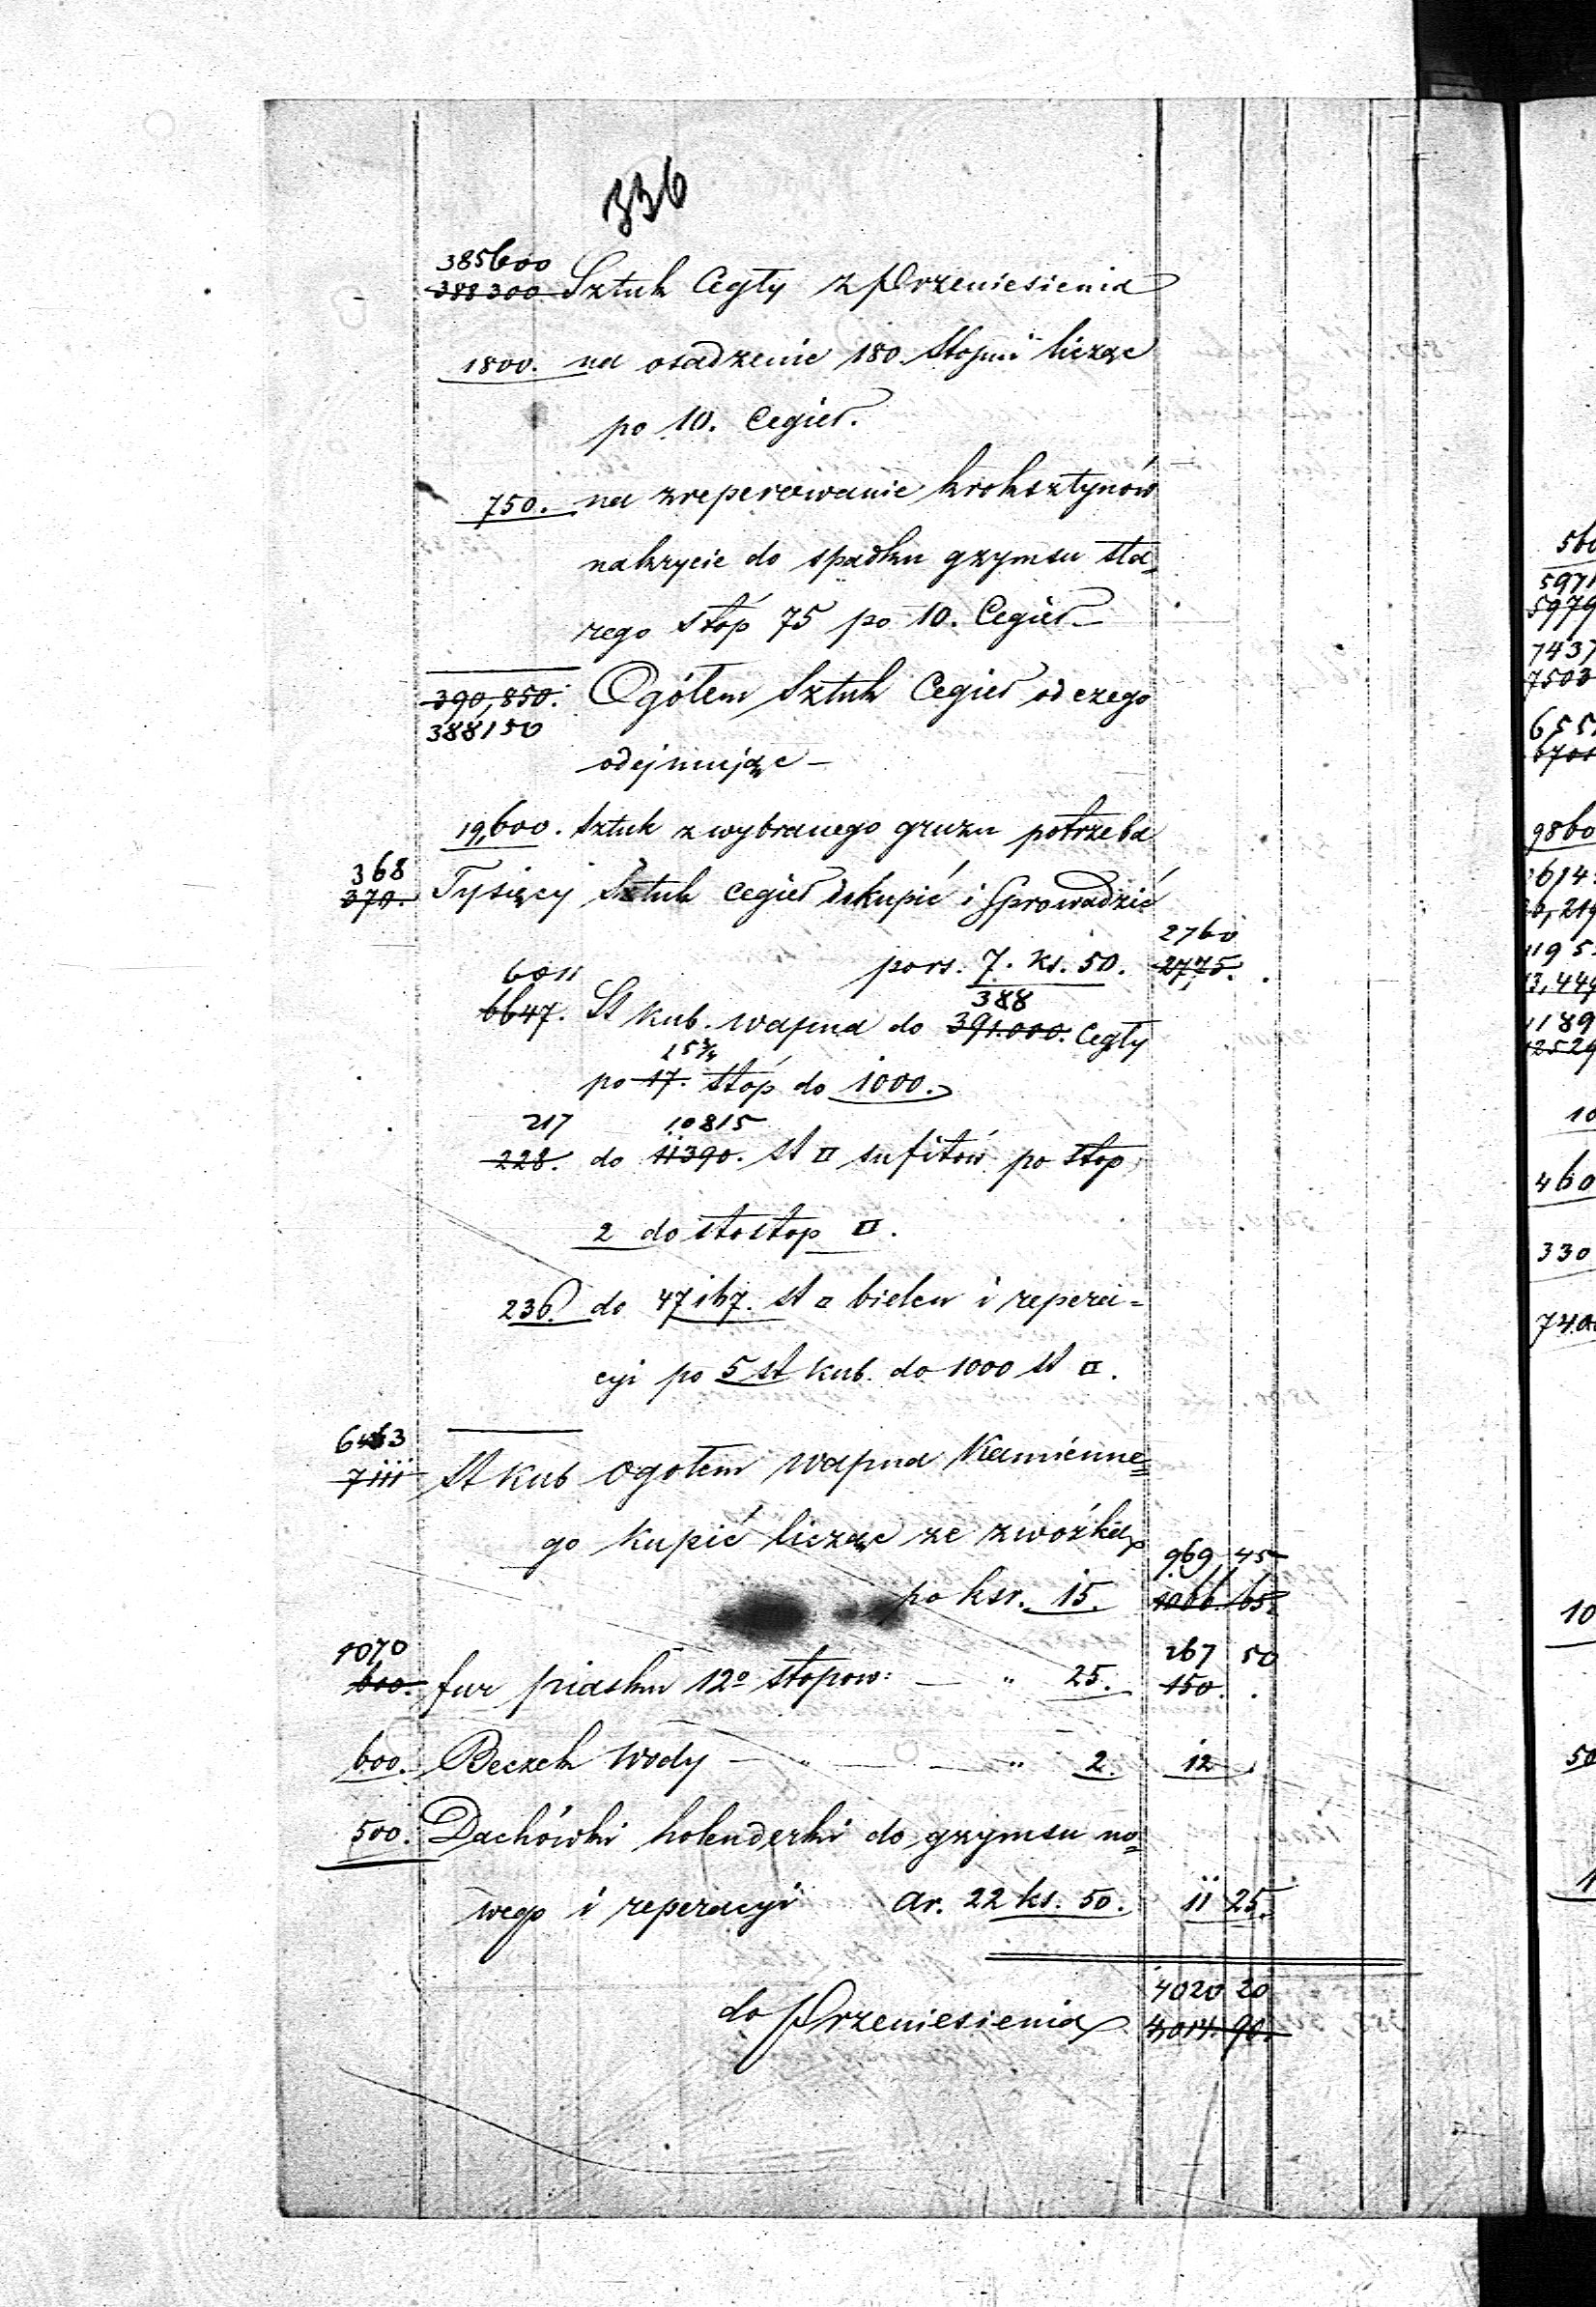 336
385600
388300 Sztuk Cegły z przeniesienia
1800. na osadzenie 180. Stopni licząc
po 10. Cegieł.
750. na zreperowanie kroksztynów
nakrycie do spadku gzymsu sta=
rego stóp 75 po 10. Cegieł
390,850. Ogółem Sztuk Cegieł od czego
388150
odejmując —
19,600. Sztuk z wybranego gruzu potrzeba
368
370. Tysięcy Sztuk cegieł dokupić i Sprowadzić
2760
po rs. 7. ks. 50. 2775.
6011 388
6647. St kub. wapna do 391.000. Cegły
15 3/4
po 17. stóp do 1000.
217 10815
228. do 11390. st □ sufitów po stop
2 do sto stop □.
236. do 47167. st □ bieleń i repera=
cyi po 5 st kub. do 1000 st □.
6463
7111 St kub ogółem wapna Kamienne=
go kupić licząc ze zwózką
969 45
po ksr. 15. 1066. 65.
1070 267 50
600. fur piasku 12º stopow: — " 25. 150.
600. Beczek Wody — " — " 2. 12
500. Dachówki holenderki do gzymsu no=
wego i reperacyi ar. 22 ks. 50. 11 25.
4020 20
do przeniesienia 4,014. 90.
560
5971
5979
7437
7503
655
6701
9860
2614
1195
3,449
1189
12529
10
460
330
740
10
50
1